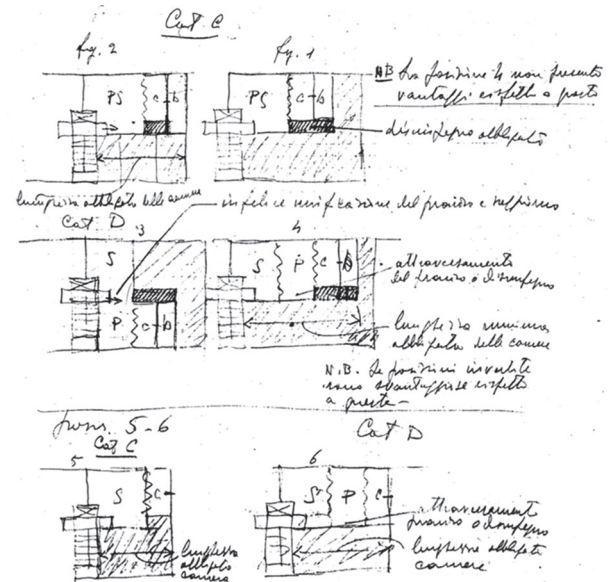 Cat C
fig. 2
fig. 1
PS
c
b
PS
c
b
NB La posizione 4 non presenta
vantaggi rispetto a questa
disimpegno obbligato
lunghezza obbligata delle camere
infelice unificazione del pranzo e soggiorno
Cat. D
3
4
S
P
c
b
S
P
c
b
attraversamento
del pranzo o disimpegno
lunghezza minima
obbligata delle camere
N.B. Le posizioni invertite
sono svantaggiose rispetto
a queste –
5-6
Cat C
Cat D
5
6
S
c
S
P
c
attraversament
pranzo o disimpegno
lunghezza
obbligata
camere
lunghezza obbligata
camere